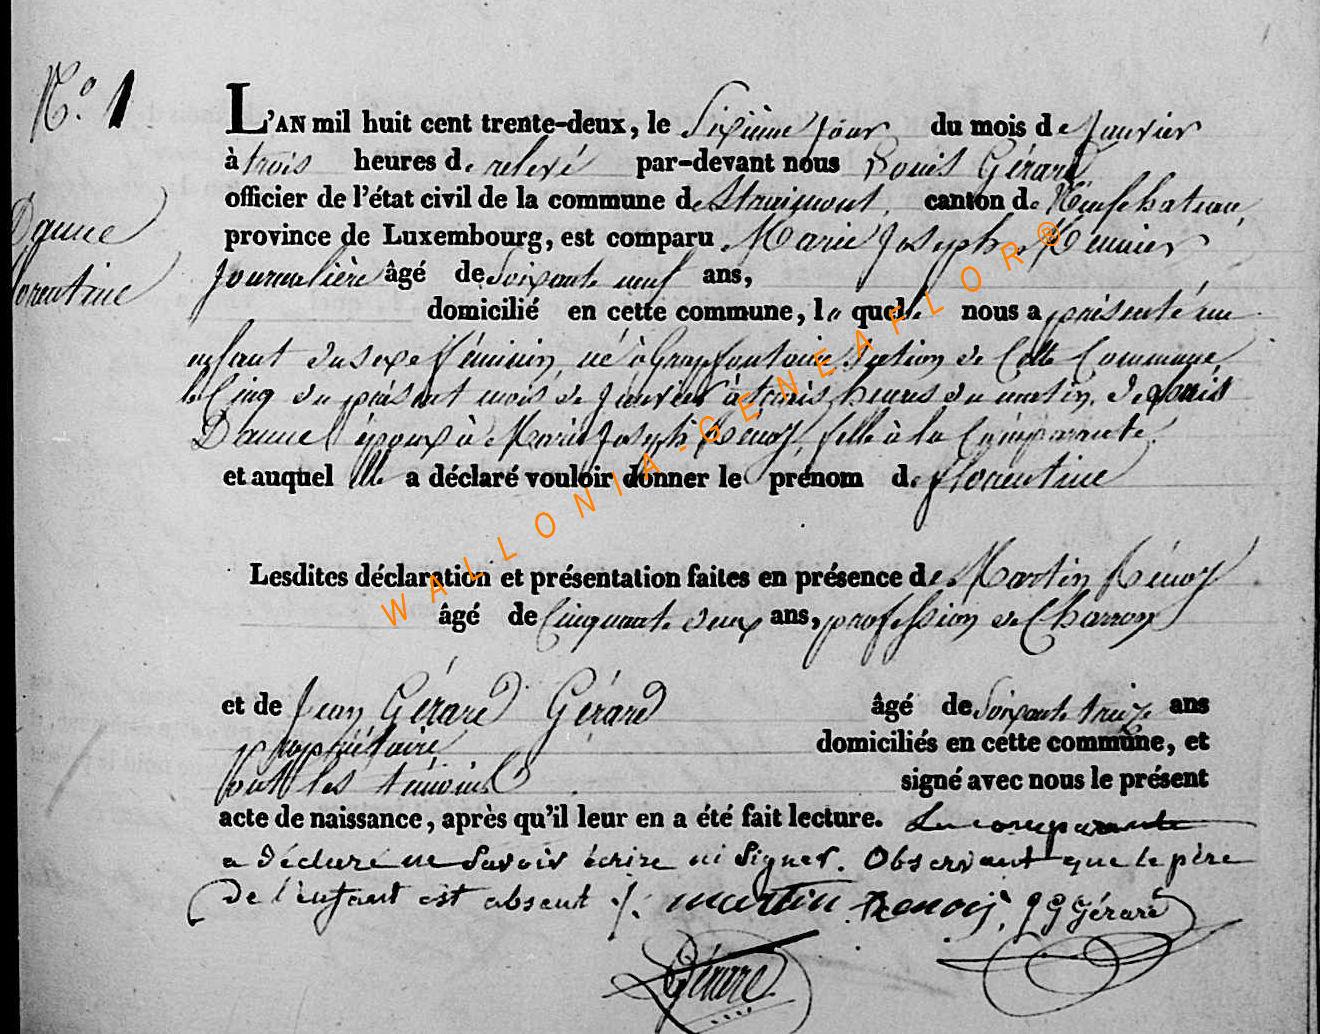 N.º 1
L'AN mil huit cent trente-deux, le Sixième jour du mois de Janvier
à trois heures de relevé par-devant nous Louis Gérard
officier de l'état civil de la commune de Straimont, canton de Neufchateau,
province de Luxembourg, est comparu Marie Joseph Meunier
Daune
Journalière âgé de Soixante neuf ans,
florentine
domicilié en cette commune, la quelle nous a présenté un
enfant du sexe féminin, né à Grapfontaine Section de Cette Commune,
le Cinq du présent mois de Janvier à trois heures du matin, de
Daune époux à Marie Joseph Rénoy, fille à la Comparante.
et auquel Elle a déclaré vouloir donner le prénom de florentine
Lesdites déclaration et présentation faites en présence de Martin Rénoy
âgé de Cinquante deux ans, profession de Charron
et de Jean Gérard Gérard âgé de Soixante treize ans
propriétaire domiciliés en cette commune, et
ont les témoins signé avec nous le présent
acte de naissance, après qu'il leur en a été fait lecture. La comparante
a déclaré ne Savoir écrire ni Signer. Observant que le père
de l'enfant est absent ./. martin Renoy, J G Gérard
LGérard
WALLONIA-GENEAFLOR®